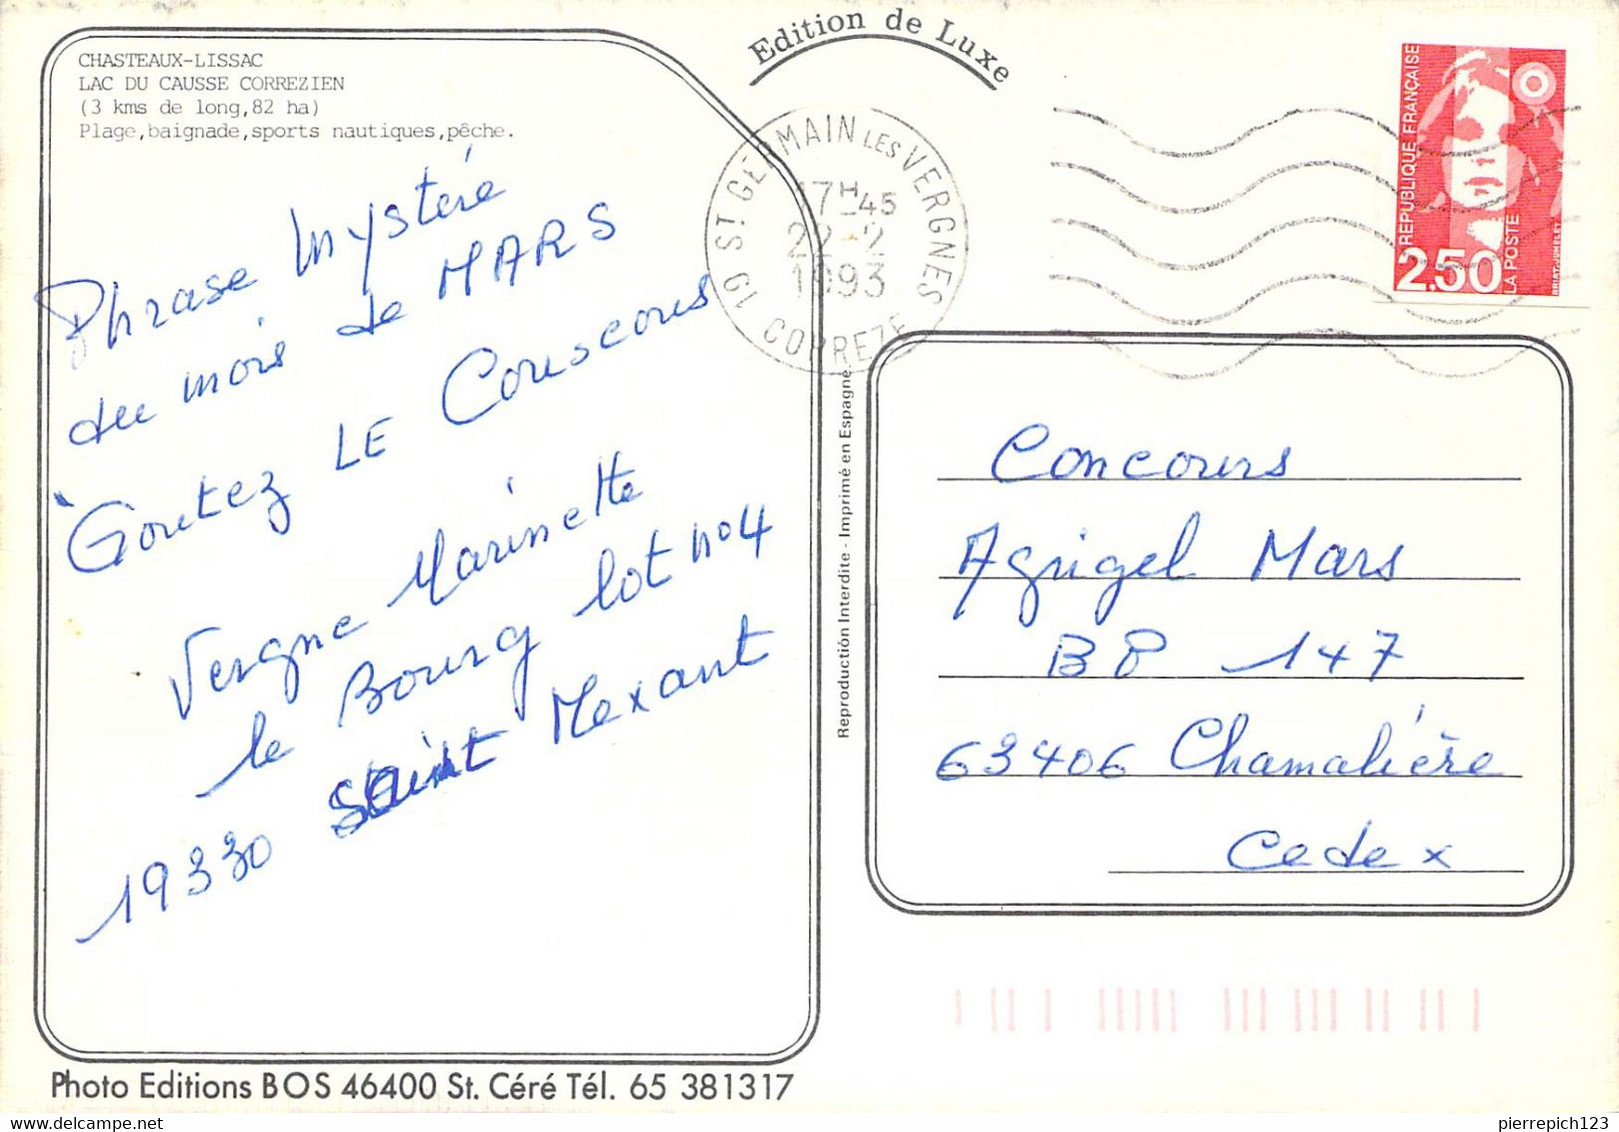 CHASTEAUX-LISSAC
LAC DU CAUSSE CORREZIEN
(3 kms de long,82 ha)
Plage,baignade,sports nautiques,pêche.
Edition de Luxe
19 ST. GERMAIN LES VERGNES
17H-45
22-2
1993
CORREZE
REPUBLIQUE FRANÇAISE
2,50
LA POSTE
BRIAT-JUMELET
Phrase Mystére
du mois de MARS
Goutez LE Couscous
Vergne Marinette
le Bourg lot no4
19330 Saint Mexant
Reproduction Interdite - Imprimé en Espagne.
Concours
Agrigel Mars
BP 147
63406 Chamalière
Cedex
Photo Editions BOS 46400 St. Céré Tél. 65 381317
pierrepich123